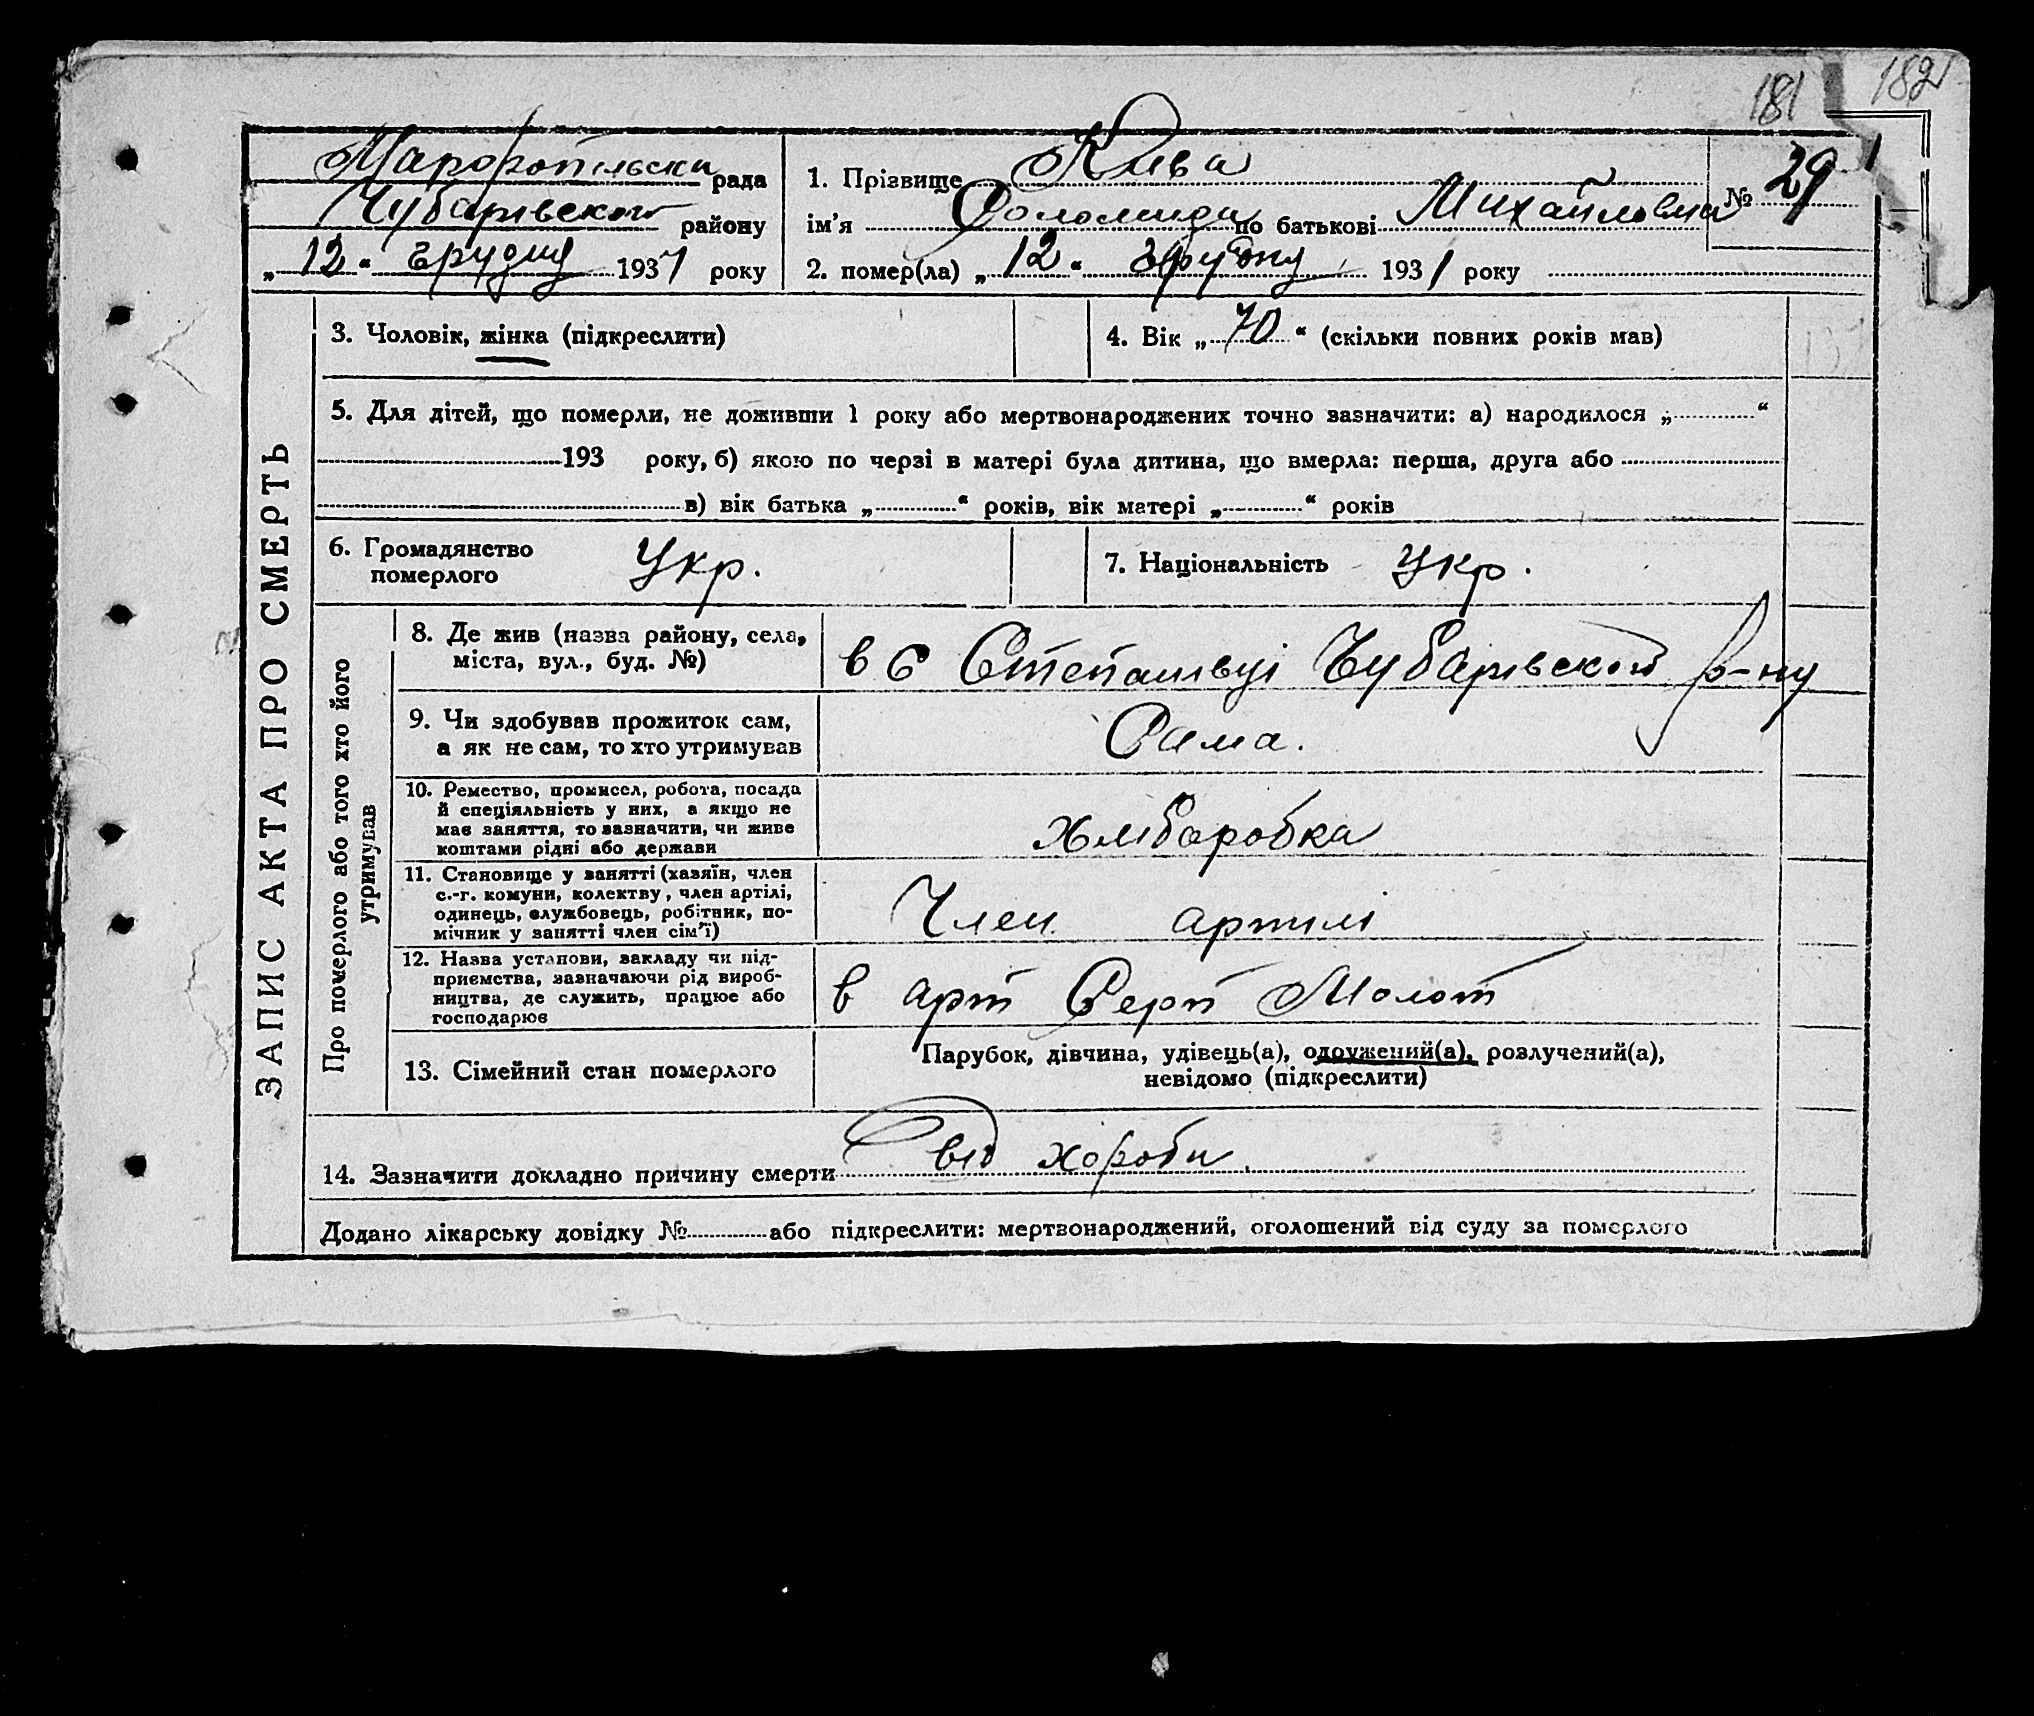 181 182
Марфопільська рада
Чубарівского району
„ 12 “ грудня 1931 року
1. Прізвище Кива
№ 29
ім'я Соломиида по батькові Михайловна
2. помер(ла) „ 12 “ грудня 1931 року
ЗАПИС АКТА ПРО СМЕРТЬ
3. Чоловік, жінка (підкреслити)
4. Вік „ 70 “ (скільки повних років мав)
5. Для дітей, що померли, не доживши 1 року або мертвонароджених точно зазначити: а) народилося „ “
193 року, б) якою по черзі в матері була дитина, що вмерла: перша, друга або
в) вік батька „ “ років, вік матері „ “ років
6. Громадянство
померлого
Укр.
7. Національність Укр.
Про померлого або того хто його
утримував
8. Де жив (назва району, села,
міста, вул., буд. №)
в с Степанівці Чубарівской р-ну
9. Чи здобував прожиток сам,
а як не сам, то хто утримував
Сама.
10. Ремество, промисел, робота, посада
й спеціяльність у них, а якщо не
має заняття, то зазначити, чи живе
коштами рідні або держави
хліборобка
11. Становище у занятті (хазяїн, член
с.-г. комуни, колектву, член артілі,
одинець, службовець, робітник, по-
мічник у занятті член сім'ї)
Член артилі
12. Назва установи, закладу чи під-
приємства, зазначаючи рід вироб-
ництва, де служить, працює або
господарює
в арт Серп Молот
13. Сімейний стан померлого
Парубок, дівчина, удівець(а), одружений(а), розлучений(а),
невідомо (підкреслити)
14. Зазначити докладно причину смерти від хороби.
Додано лікарську довідку № або підкреслити: мертвонароджений, оголошений від суду за померлого